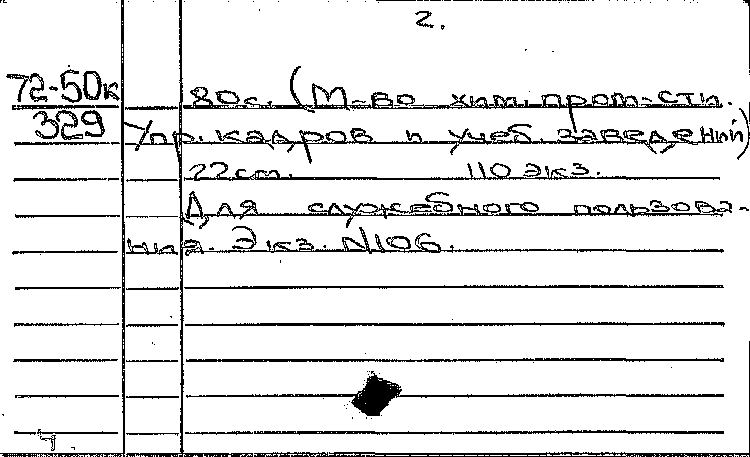 2.
72-50к 80с. (М-во хим. пром-сти.
329 Упр. кадров и учеб. заведений)
22см. 110 экз.
Для служебного пользова-
ния. Экз. N106.
4.